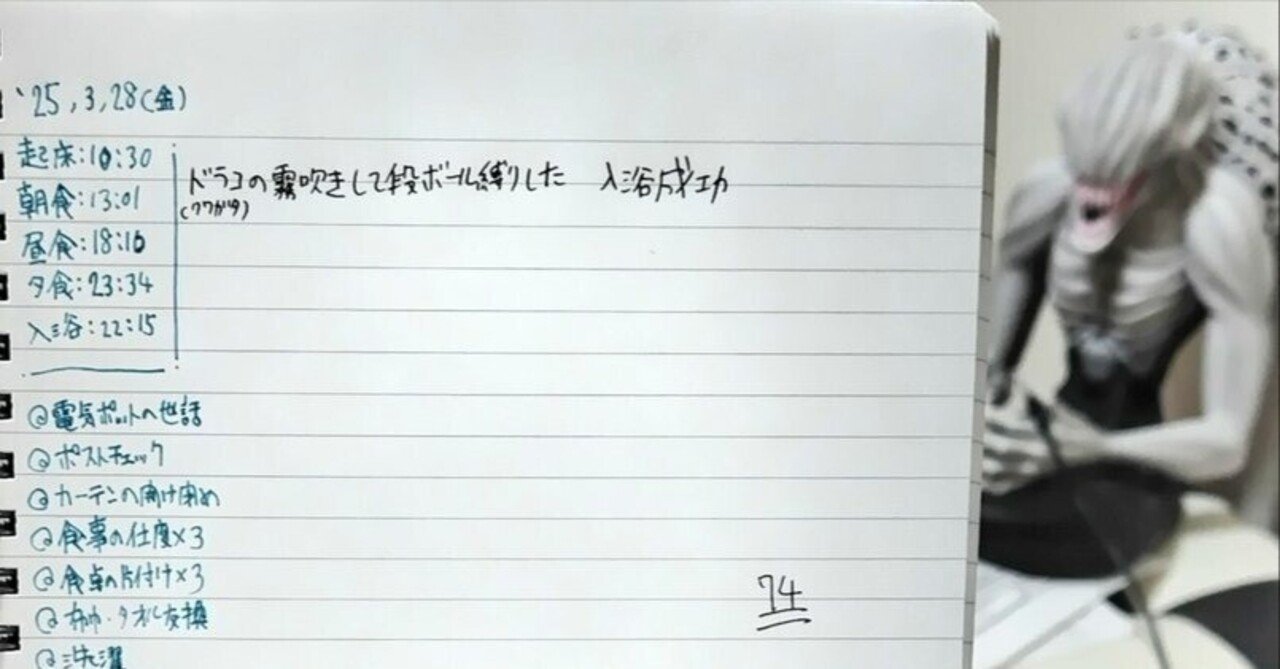 '25,3,28(金)
起床:10:30
朝食:13:01
昼食:18:10
夕食:23:34
入浴:22:15
ドラコの霧吹きして段ボール縛りした 入浴成功
(クワガタ)
@電気ポットの世話
@ポストチェック
@カーテンの開け閉め
@食事の仕度×3
@食卓の片付け×3
・タオル交換
@洗濯
74